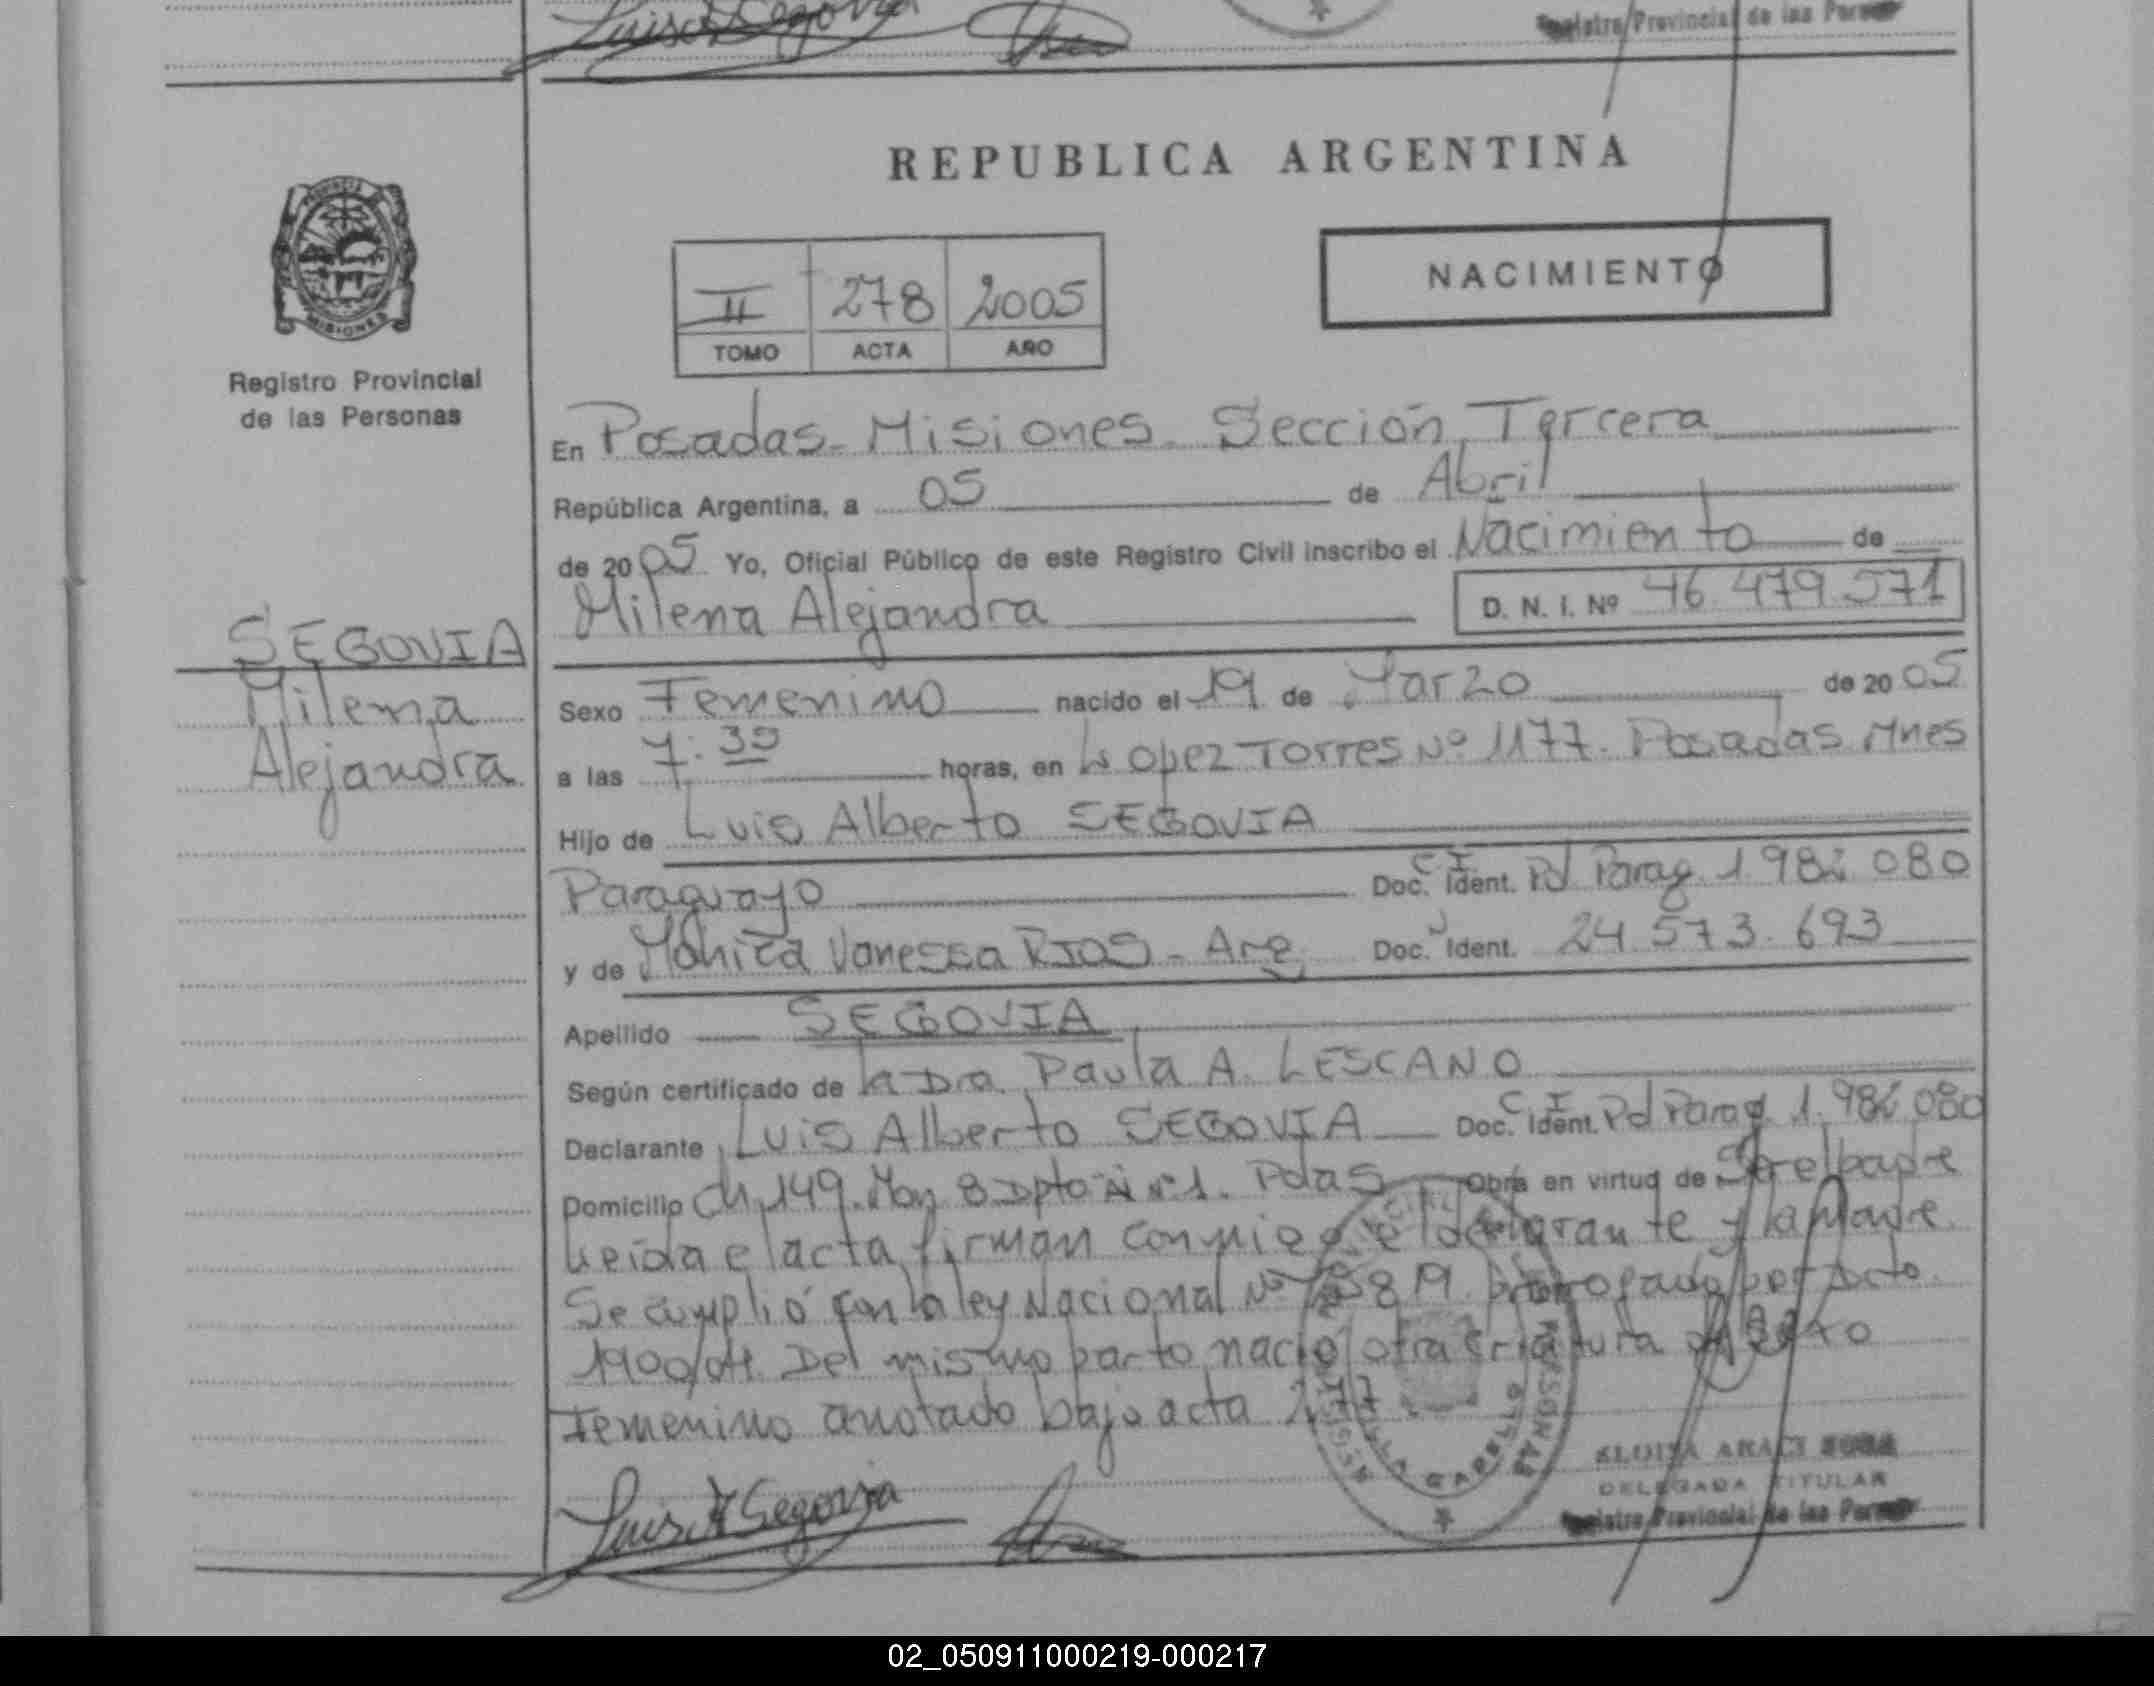 Luis A Segovia
Registro Provincial de las Personas
REPUBLICA ARGENTINA
PROVINCIA
MISIONES
Registro Provincial
de las Personas
II 278 2005
TOMO ACTA AÑO
NACIMIENTO
En Posadas - Misiones - Sección Tercera
República Argentina, a 05 de Abril
de 2005 Yo, Oficial Público de este Registro Civil inscribo el Nacimiento de
Milena Alejandra D. N. I. Nº 46.479.571
SEGOVIA
Milena
Alejandra
Sexo Femenino nacido el 19 de Marzo de 2005
a las 7:30 horas, en Lopez Torres Nº 1177. Posadas Mnes
Hijo de Luis Alberto SEGOVIA
Paraguayo Doc. C I Ident. Pd Parag 1.98 080
y de Mónica Vanessa RIOS - Arg. Doc. Ident. 24.573.693
Apellido SEGOVIA
Según certificado de la Dra Paula A. LESCANO
Declarante Luis Alberto SEGOVIA Doc. C I Ident. Pd Parag 1.98 080
Domicilio Ch 149. Mon 8 Dpto Nº 1. Pdas Obra en virtud de Ser el padre
Leida el acta firman conmigo el declarante y la Madre.
Se cumplió con la ley Nacional Nº prorrogado por Dcto.
1900/04. Del mismo parto nació otra criatura de sexo
Femenino anotado bajo acta 277
Luis A Segovia
DELEGADA TITULAR
Registro Provincial de las Personas
02_050911000219-000217